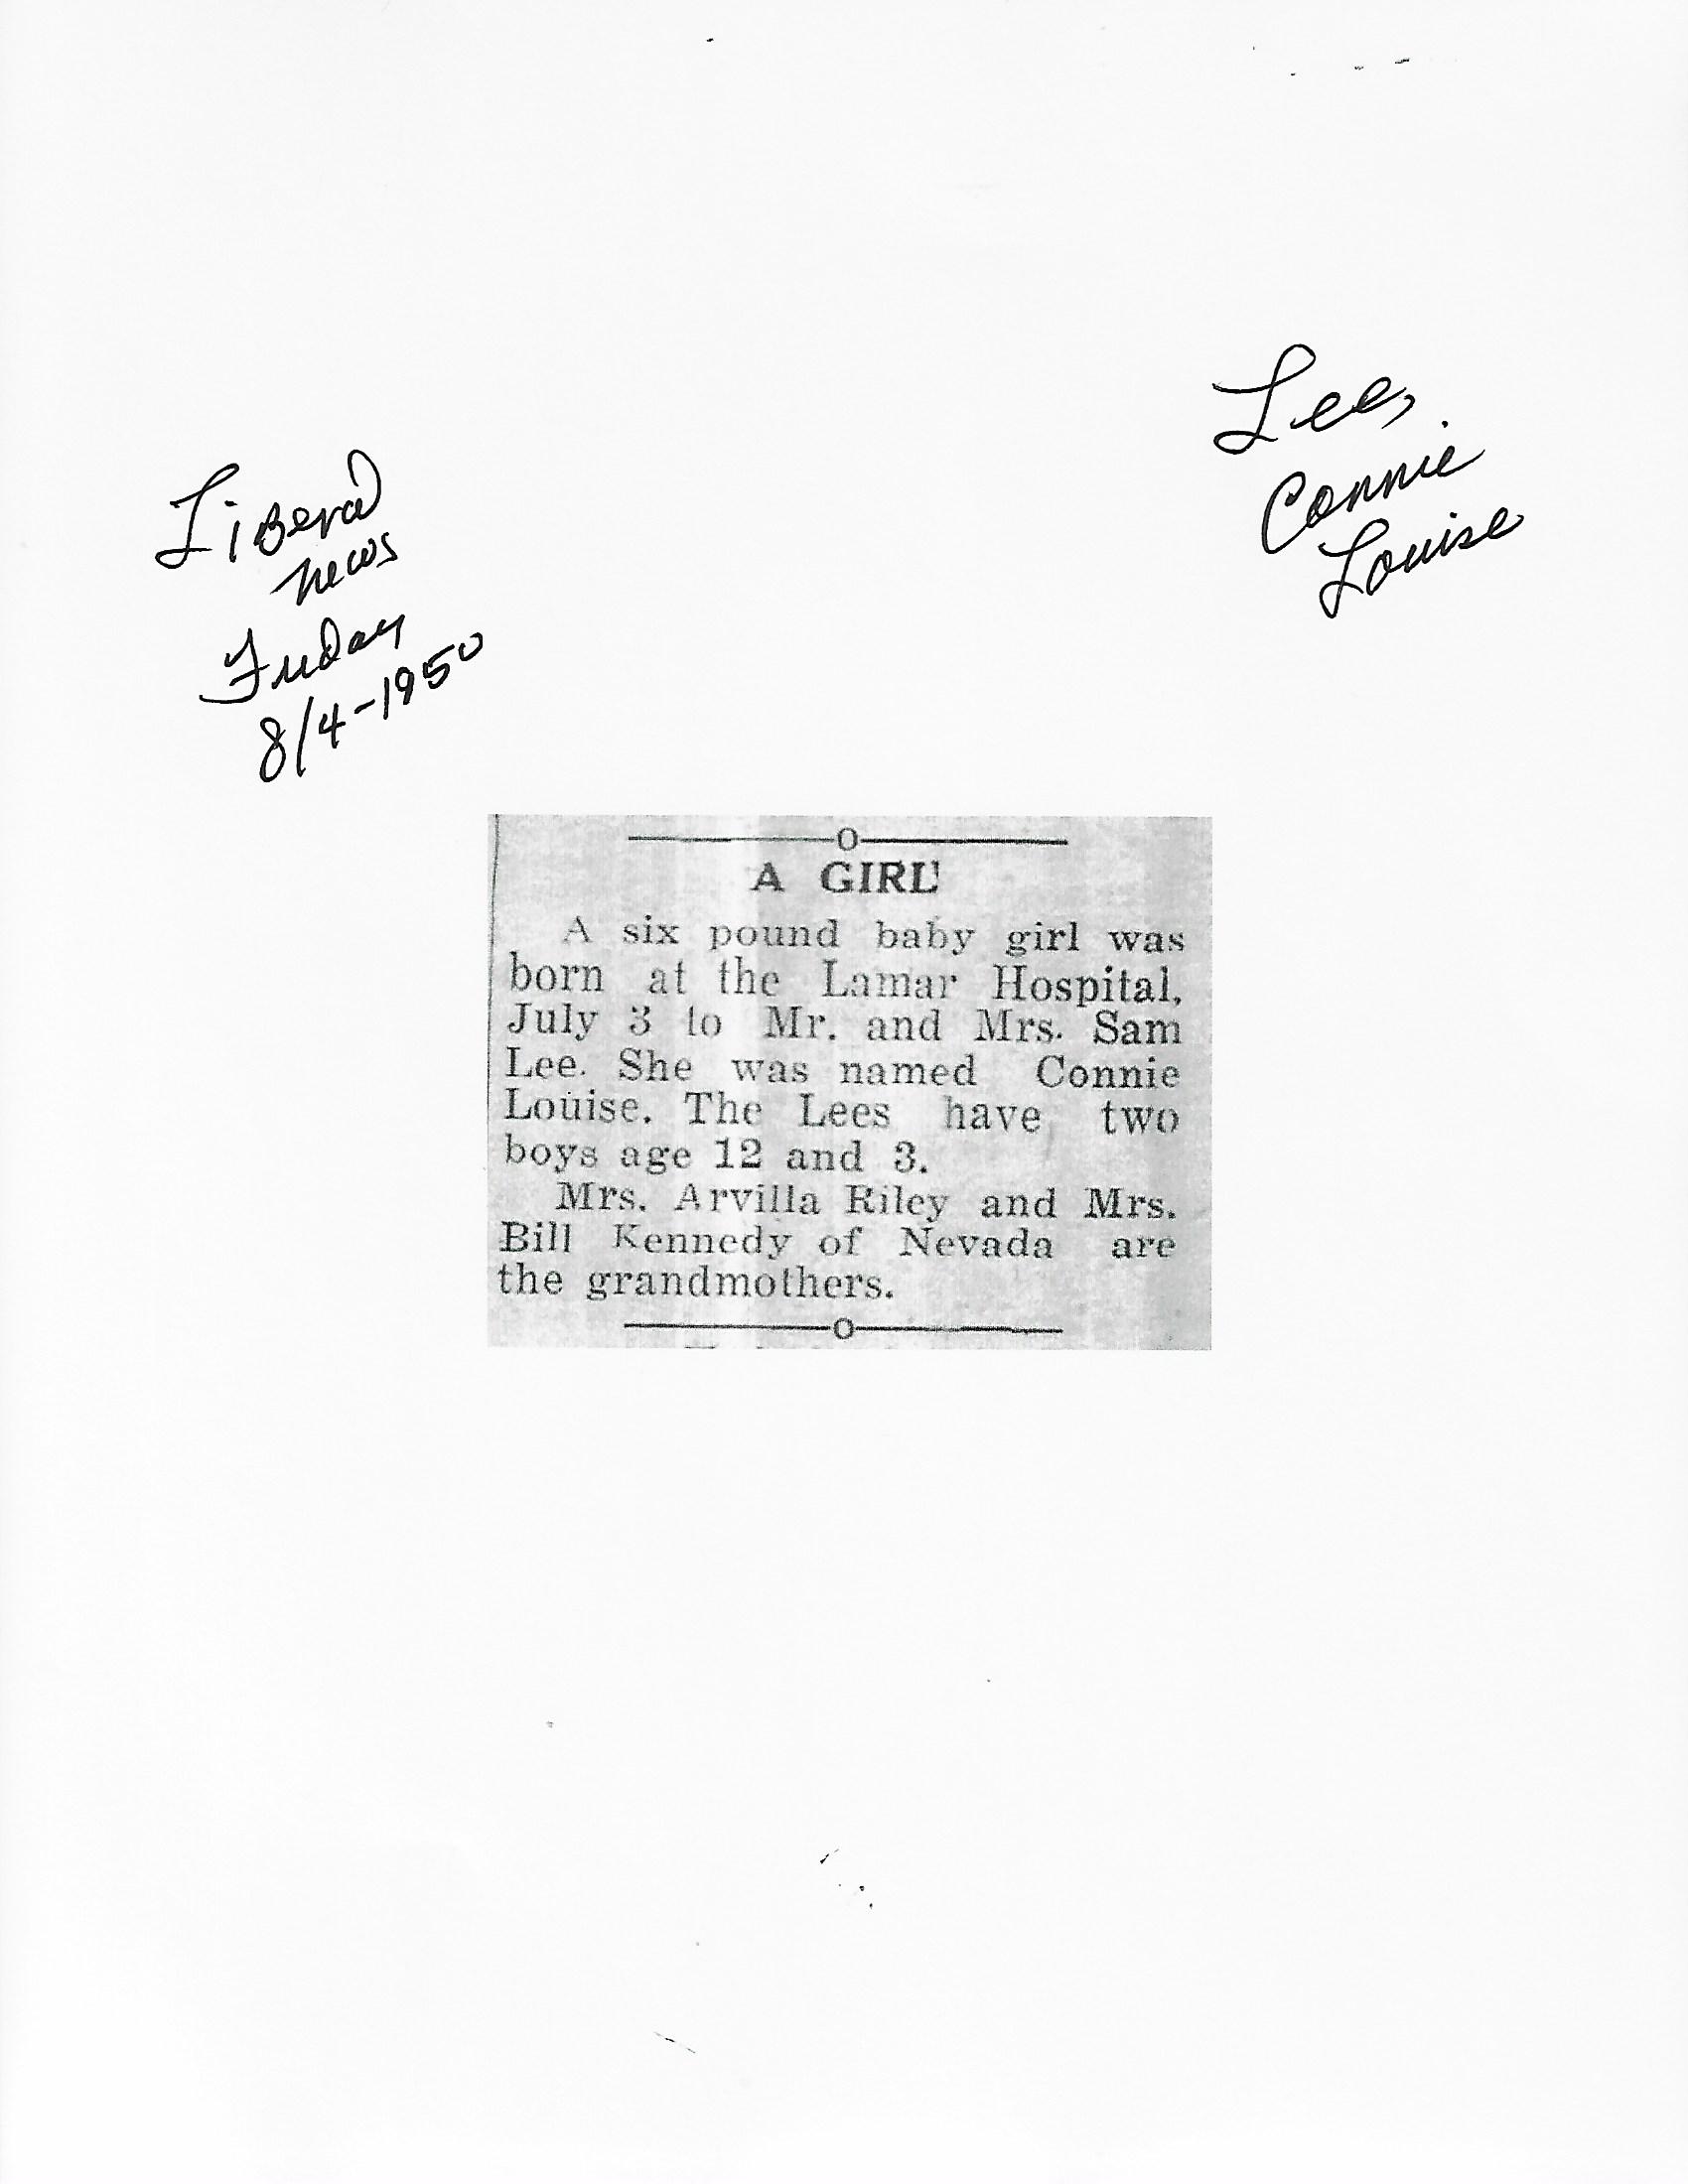 Lee,
Connie
Louise
Liberal
news
Friday
8/4-1950
A GIRL
A six pound baby girl was
born at the Lamar Hospital,
July 3 to Mr. and Mrs. Sam
Lee. She was named Connie
Louise. The Lees have two
boys age 12 and 3.
Mrs. Arvilla Riley and Mrs.
Bill Kennedy of Nevada are
the grandmothers.